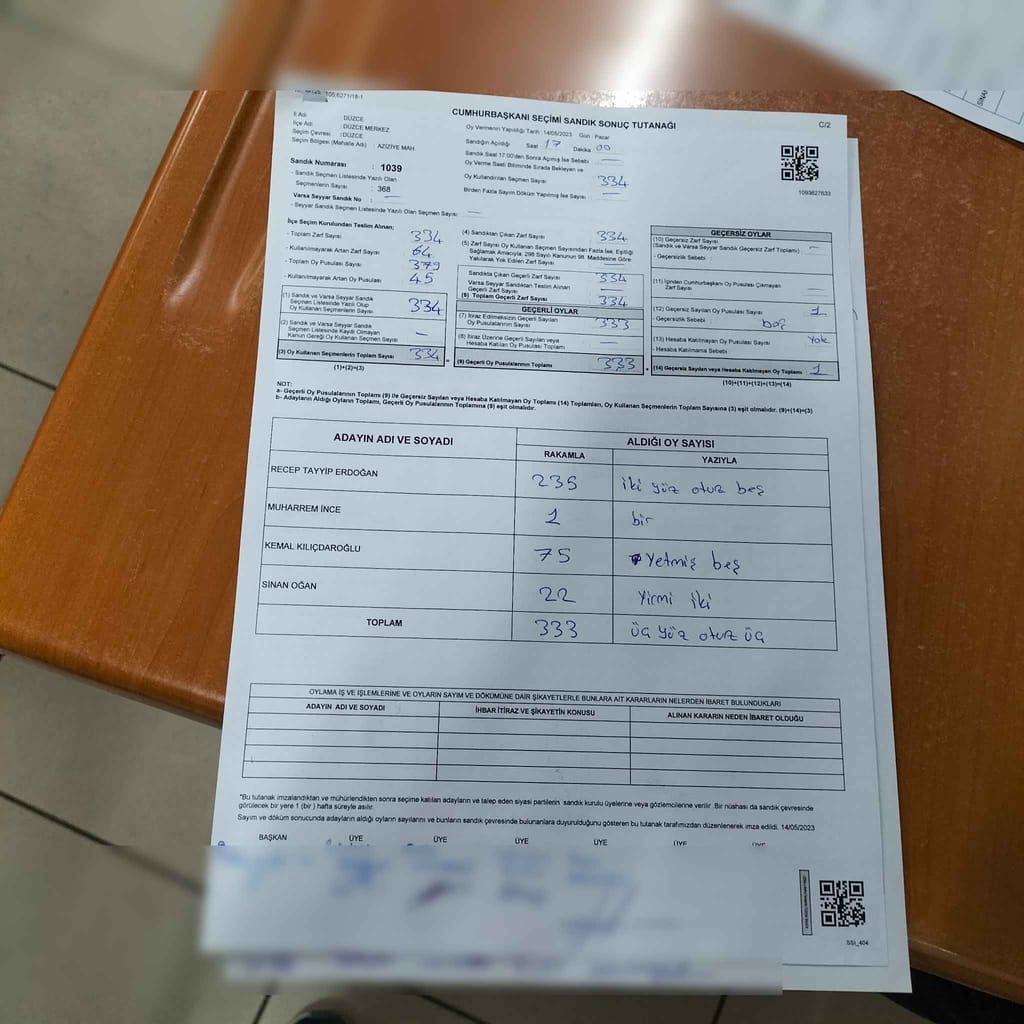 105.6271/18-1
CUMHURBAŞKANI SEÇİMİ SANDIK SONUÇ TUTANAĞI
C/2
İl Adı : DÜZCE
İlçe Adı : DÜZCE MERKEZ
Seçim Çevresi : DÜZCE
Seçim Bölgesi (Mahalle Adı) : AZİZİYE MAH.
Sandık Numarası : 1039
- Sandık Seçmen Listesinde Yazılı Olan
Seçmenlerin Sayısı : 368
Varsa Seyyar Sandık No : —
- Seyyar Sandık Seçmen Listesinde Yazılı Olan Seçmen Sayısı : —
Oy Vermenin Yapıldığı Tarih : 14/05/2023 Gün : Pazar
Sandığın Açıldığı Saat 17 Dakika 00
Sandık Saat 17.00'den Sonra Açılmış İse Sebebi : —
Oy Verme Saati Bitiminde Sırada Bekleyen ve
Oy Kullandırılan Seçmen Sayısı 334
Birden Fazla Sayım Döküm Yapılmış İse Sayısı : —
1093627633
İlçe Seçim Kurulundan Teslim Alınan;
- Toplam Zarf Sayısı 334
- Kullanılmayarak Artan Zarf Sayısı 64
- Toplam Oy Pusulası Sayısı 379
- Kullanılmayarak Artan Oy Pusulası 45
(1) Sandık ve Varsa Seyyar Sandık
Seçmen Listesinde Yazılı Olup
Oy Kullanan Seçmenlerin Sayısı 334
(2) Sandık ve Varsa Seyyar Sandık
Seçmen Listesinde Kayıtlı Olmayan
Kanun Gereği Oy Kullanan Seçmen Sayısı —
(3) Oy Kullanan Seçmenlerin Toplam Sayısı 334
(1)+(2)=(3)
(4) Sandıktan Çıkan Zarf Sayısı 334
(5) Zarf Sayısı Oy Kullanan Seçmen Sayısından Fazla İse, Eşitliği
Sağlamak Amacıyla, 298 Sayılı Kanunun 98. Maddesine Göre
Yakılarak Yok Edilen Zarf Sayısı —
Sandıkta Çıkan Geçerli Zarf Sayısı 334
Varsa Seyyar Sandıktan Teslim Alınan
Geçerli Zarf Sayısı —
(6) Toplam Geçerli Zarf Sayısı 334
GEÇERLİ OYLAR
(7) İtiraz Edilmeksizin Geçerli Sayılan
Oy Pusulalarının Sayısı 333
(8) İtiraz Üzerine Geçerli Sayılan veya
Hesaba Katılan Oy Pusulası Toplamı —
(9) Geçerli Oy Pusulalarının Toplamı 333
GEÇERSİZ OYLAR
(10) Geçersiz Zarf Sayısı
(Sandık ve Varsa Seyyar Sandık Geçersiz Zarf Toplamı) —
- Geçersizlik Sebebi
(11) İçinden Cumhurbaşkanı Oy Pusulası Çıkmayan
Zarf Sayısı —
(12) Geçersiz Sayılan Oy Pusulası Sayısı 1
Geçersizlik Sebebi boş
(13) Hesaba Katılmayan Oy Pusulası Sayısı Yok
Hesaba Katılmama Sebebi
(14) Geçersiz Sayılan veya Hesaba Katılmayan Oy Toplamı 1
(10)+(11)+(12)+(13)=(14)
NOT:
a- Geçerli Oy Pusulalarının Toplamı (9) ile Geçersiz Sayılan veya Hesaba Katılmayan Oy Toplamı (14) Toplamları, Oy Kullanan Seçmenlerin Toplam Sayısına (3) eşit olmalıdır. (9)+(14)=(3)
b- Adayların Aldığı Oyların Toplamı, Geçerli Oy Pusulalarının Toplamına (9) eşit olmalıdır.
ADAYIN ADI VE SOYADI ALDIĞI OY SAYISI
RAKAMLA YAZIYLA
RECEP TAYYİP ERDOĞAN 235 iki yüz otuz beş
MUHARREM İNCE 1 bir
KEMAL KILIÇDAROĞLU 75 yetmiş beş
SİNAN OĞAN 22 Yirmi iki
TOPLAM 333 üç yüz otuz üç
OYLAMA İŞ VE İŞLEMLERİNE VE OYLARIN SAYIM VE DÖKÜMÜNE DAİR ŞİKAYETLERLE BUNLARA AİT KARARLARIN NELERDEN İBARET BULUNDUKLARI
ADAYIN ADI VE SOYADI İHBAR İTİRAZ VE ŞİKAYETİN KONUSU ALINAN KARARIN NEDEN İBARET OLDUĞU
*Bu tutanak imzalandıktan ve mühürlendikten sonra seçime katılan adayların ve talep eden siyasi partilerin sandık kurulu üyelerine veya gözlemcilerine verilir. Bir nüshası da sandık çevresinde
görülecek bir yere 1 (bir) hafta süreyle asılır.
Sayım ve döküm sonucunda adayların aldığı oyların sayılarını ve bunların sandık çevresinde bulunanlara duyurulduğunu gösteren bu tutanak tarafımızdan düzenlenerek imza edildi. 14/05/2023
BAŞKAN ÜYE ÜYE ÜYE ÜYE ÜYE ÜYE
SSİ_404